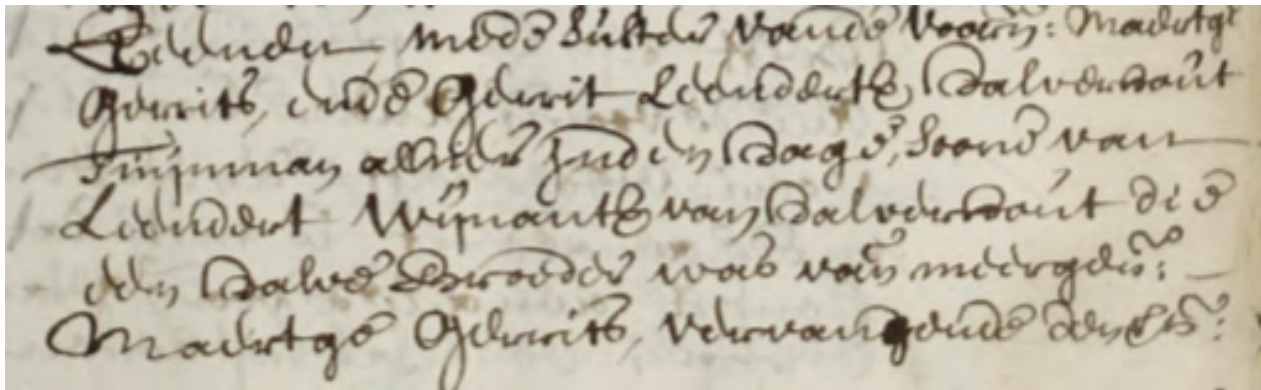 Leenden, mede suster vande voorn: Maertge
Gerrits, ende Gerrit Leenderts Halverhout
Timmerman alhier Inden Hage, soone van
Leendert Wijnants van Halverhout die
een halve broeder was van meergen:
Maertge Gerrits, vervangende den